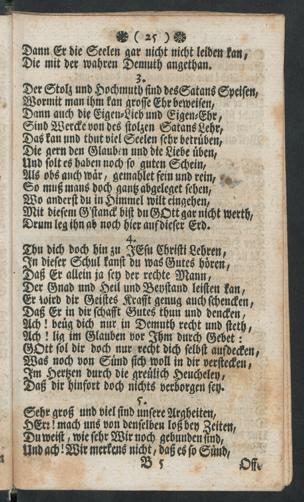 ( 25 )
Dann Er die Seelen gar nicht nicht leiden kan,
Die mit der wahren Demuth angethan.
3.
Der Stolz und Hochmuth sind des Satans Speisen,
Wormit man ihm kan grosse Ehr beweisen,
Dann auch die Eigen-Lieb und Eigen-Ehr,
Sind Wercke von des stolzen Satans Lehr,
Das kan und thut viel Seelen sehr betrüben,
Die gern den Glauben und die Liebe üben,
Und solt es haben noch so guten Schein,
Als obs auch wär, gemahlet fein und rein,
So muß mans doch gantz abgeleget sehen,
Wo anderst du in Himmel wilt eingehen,
Mit diesem G'stanck bist du GOtt gar nicht werth,
Drum leg ihn ab noch hier auf dieser Erd.
4.
Thu dich doch hin zu JEsu Christi Lehren,
In dieser Schul kanst du was Gutes hören,
Daß Er allein ja sey der rechte Mann,
Der Gnad und Heil und Beystand leisten kan,
Er wird dir Geistes Krafft genug auch schencken,
Daß Er in dir schafft Gutes thun und dencken,
Ach! beüg dich nur in Demuth recht und steth,
Ach! lig im Glauben vor Ihm durch Gebet:
GOtt sol dir doch nur recht dich selbst aufdecken,
Was noch von Sünd sich woll in dir verstecken,
Im Hertzen durch die greülich Heucheley,
Daß dir hinfort doch nichts verborgen sey.
5.
Sehr groß und viel sind unsere Argheiten,
HErr! mach uns von denselben loß bey Zeiten,
Du weist, wie sehr Wir noch gebunden sind,
Und ach! Wir merkens nicht, daß es so Sünd,
B 5 Off-